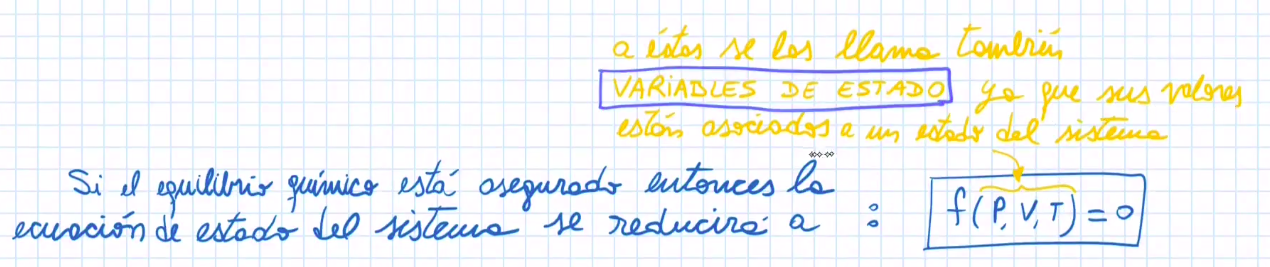 a éstas se las llama también
VARIABLES DE ESTADO ya que sus valores
están asociados a un estado del sistema
Si el equilibrio químico está asegurado entonces la
ecuación de estado del sistema se reducirá a : f(P, V, T) = 0